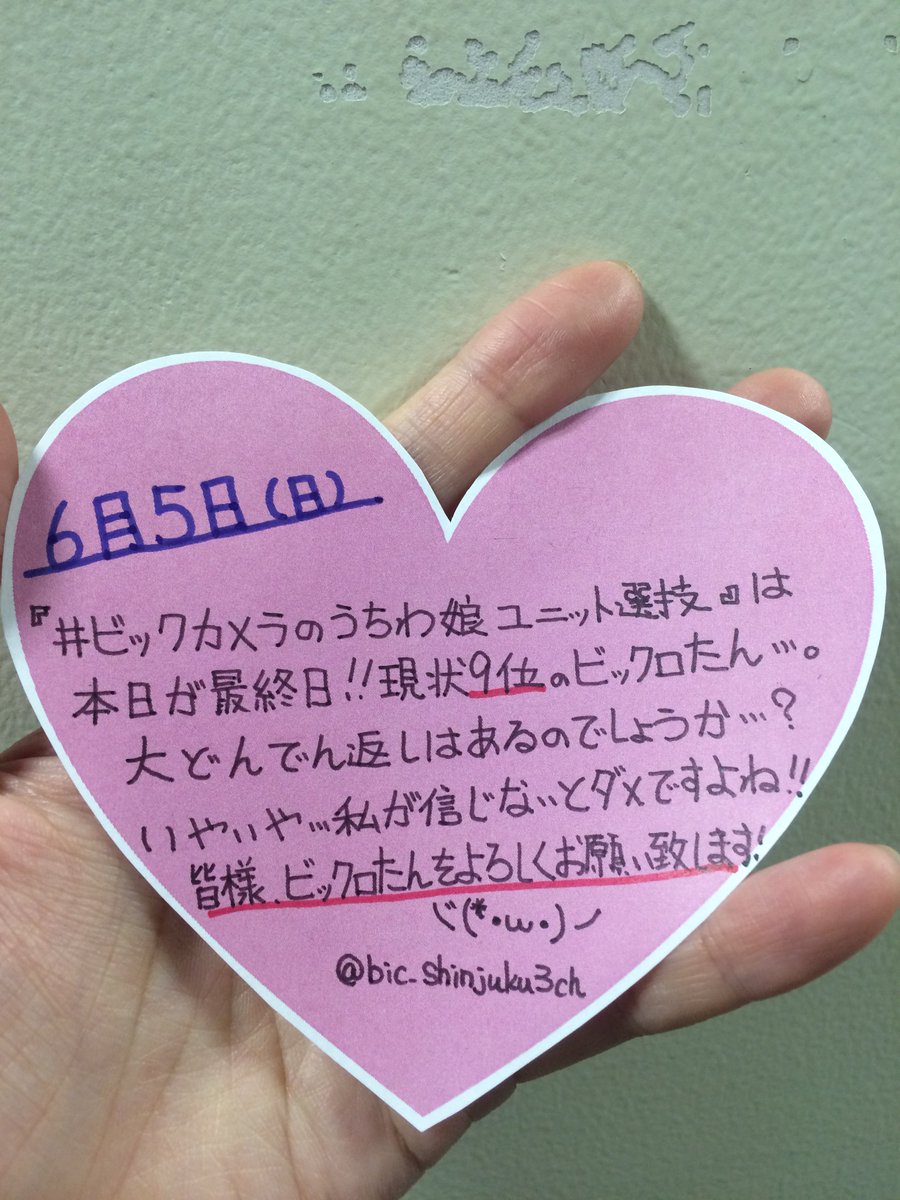 6月5日(日)
『#ビックカメラのうちわ娘ユニット選技』は
本日が最終日!!現状9位のビックロたん…。
大どんでん返しはあるのでしょうか…?
いやいや…私が信じないとダメですよね!!
皆様、ビックロたんをよろしくお願い致します!
ヾ(*・ω・)ノ
@bic_shinjuku3ch